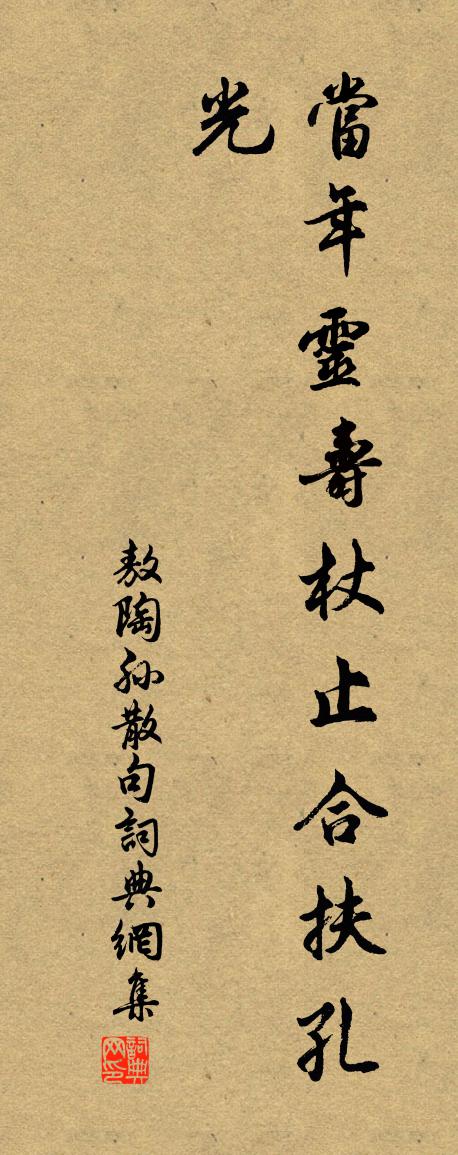 當年靈壽杖止合扶孔
光
敖陶孫散句詞典網集
詞典网印